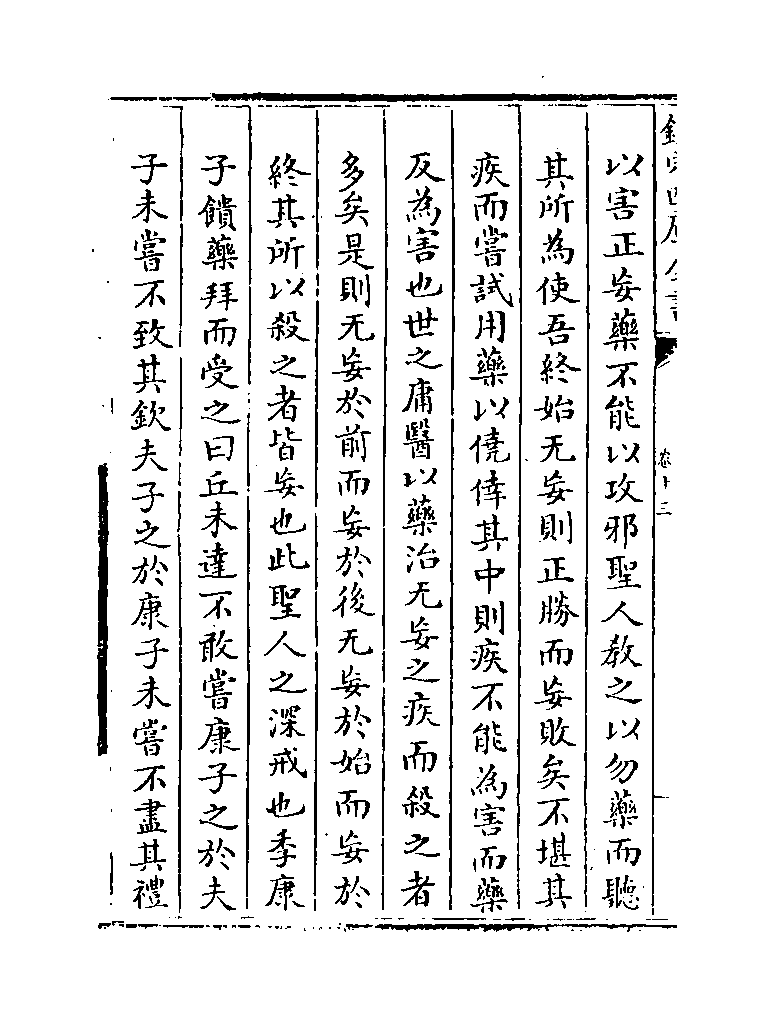 欽定四庫全書
卷十三
以害正妄藥不能以攻邪聖人教之以勿藥而聽
其所為使吾終始无妄則正勝而妄敗矣不堪其
疾而嘗試用藥以僥倖其中則疾不能為害而藥
反為害也世之庸醫以藥治无妄之疾而殺之者
多矣是則无妄於前而妄於後无妄於始而妄於
終其所以殺之者皆妄也此聖人之深戒也季康
子饋藥拜而受之曰丘未達不敢嘗康子之於夫
子未嘗不致其欽夫子之於康子未嘗不盡其禮